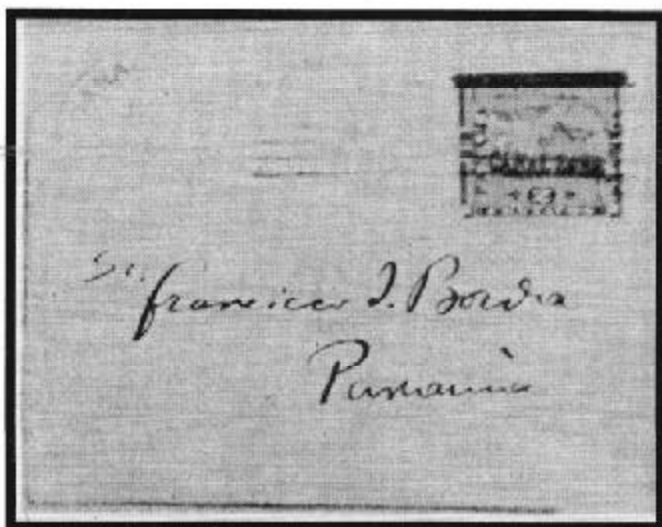 CANAL ZONE
Sr. Francisco I. Bordea
Panamá